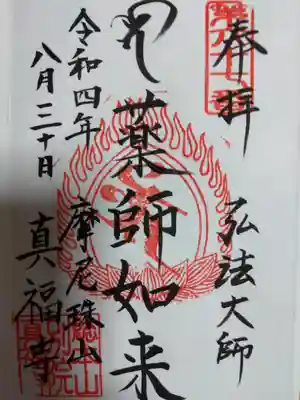 奉拝
弘法大師
薬師如来
令和四年
八月三十日
摩尼珠山
真福寺